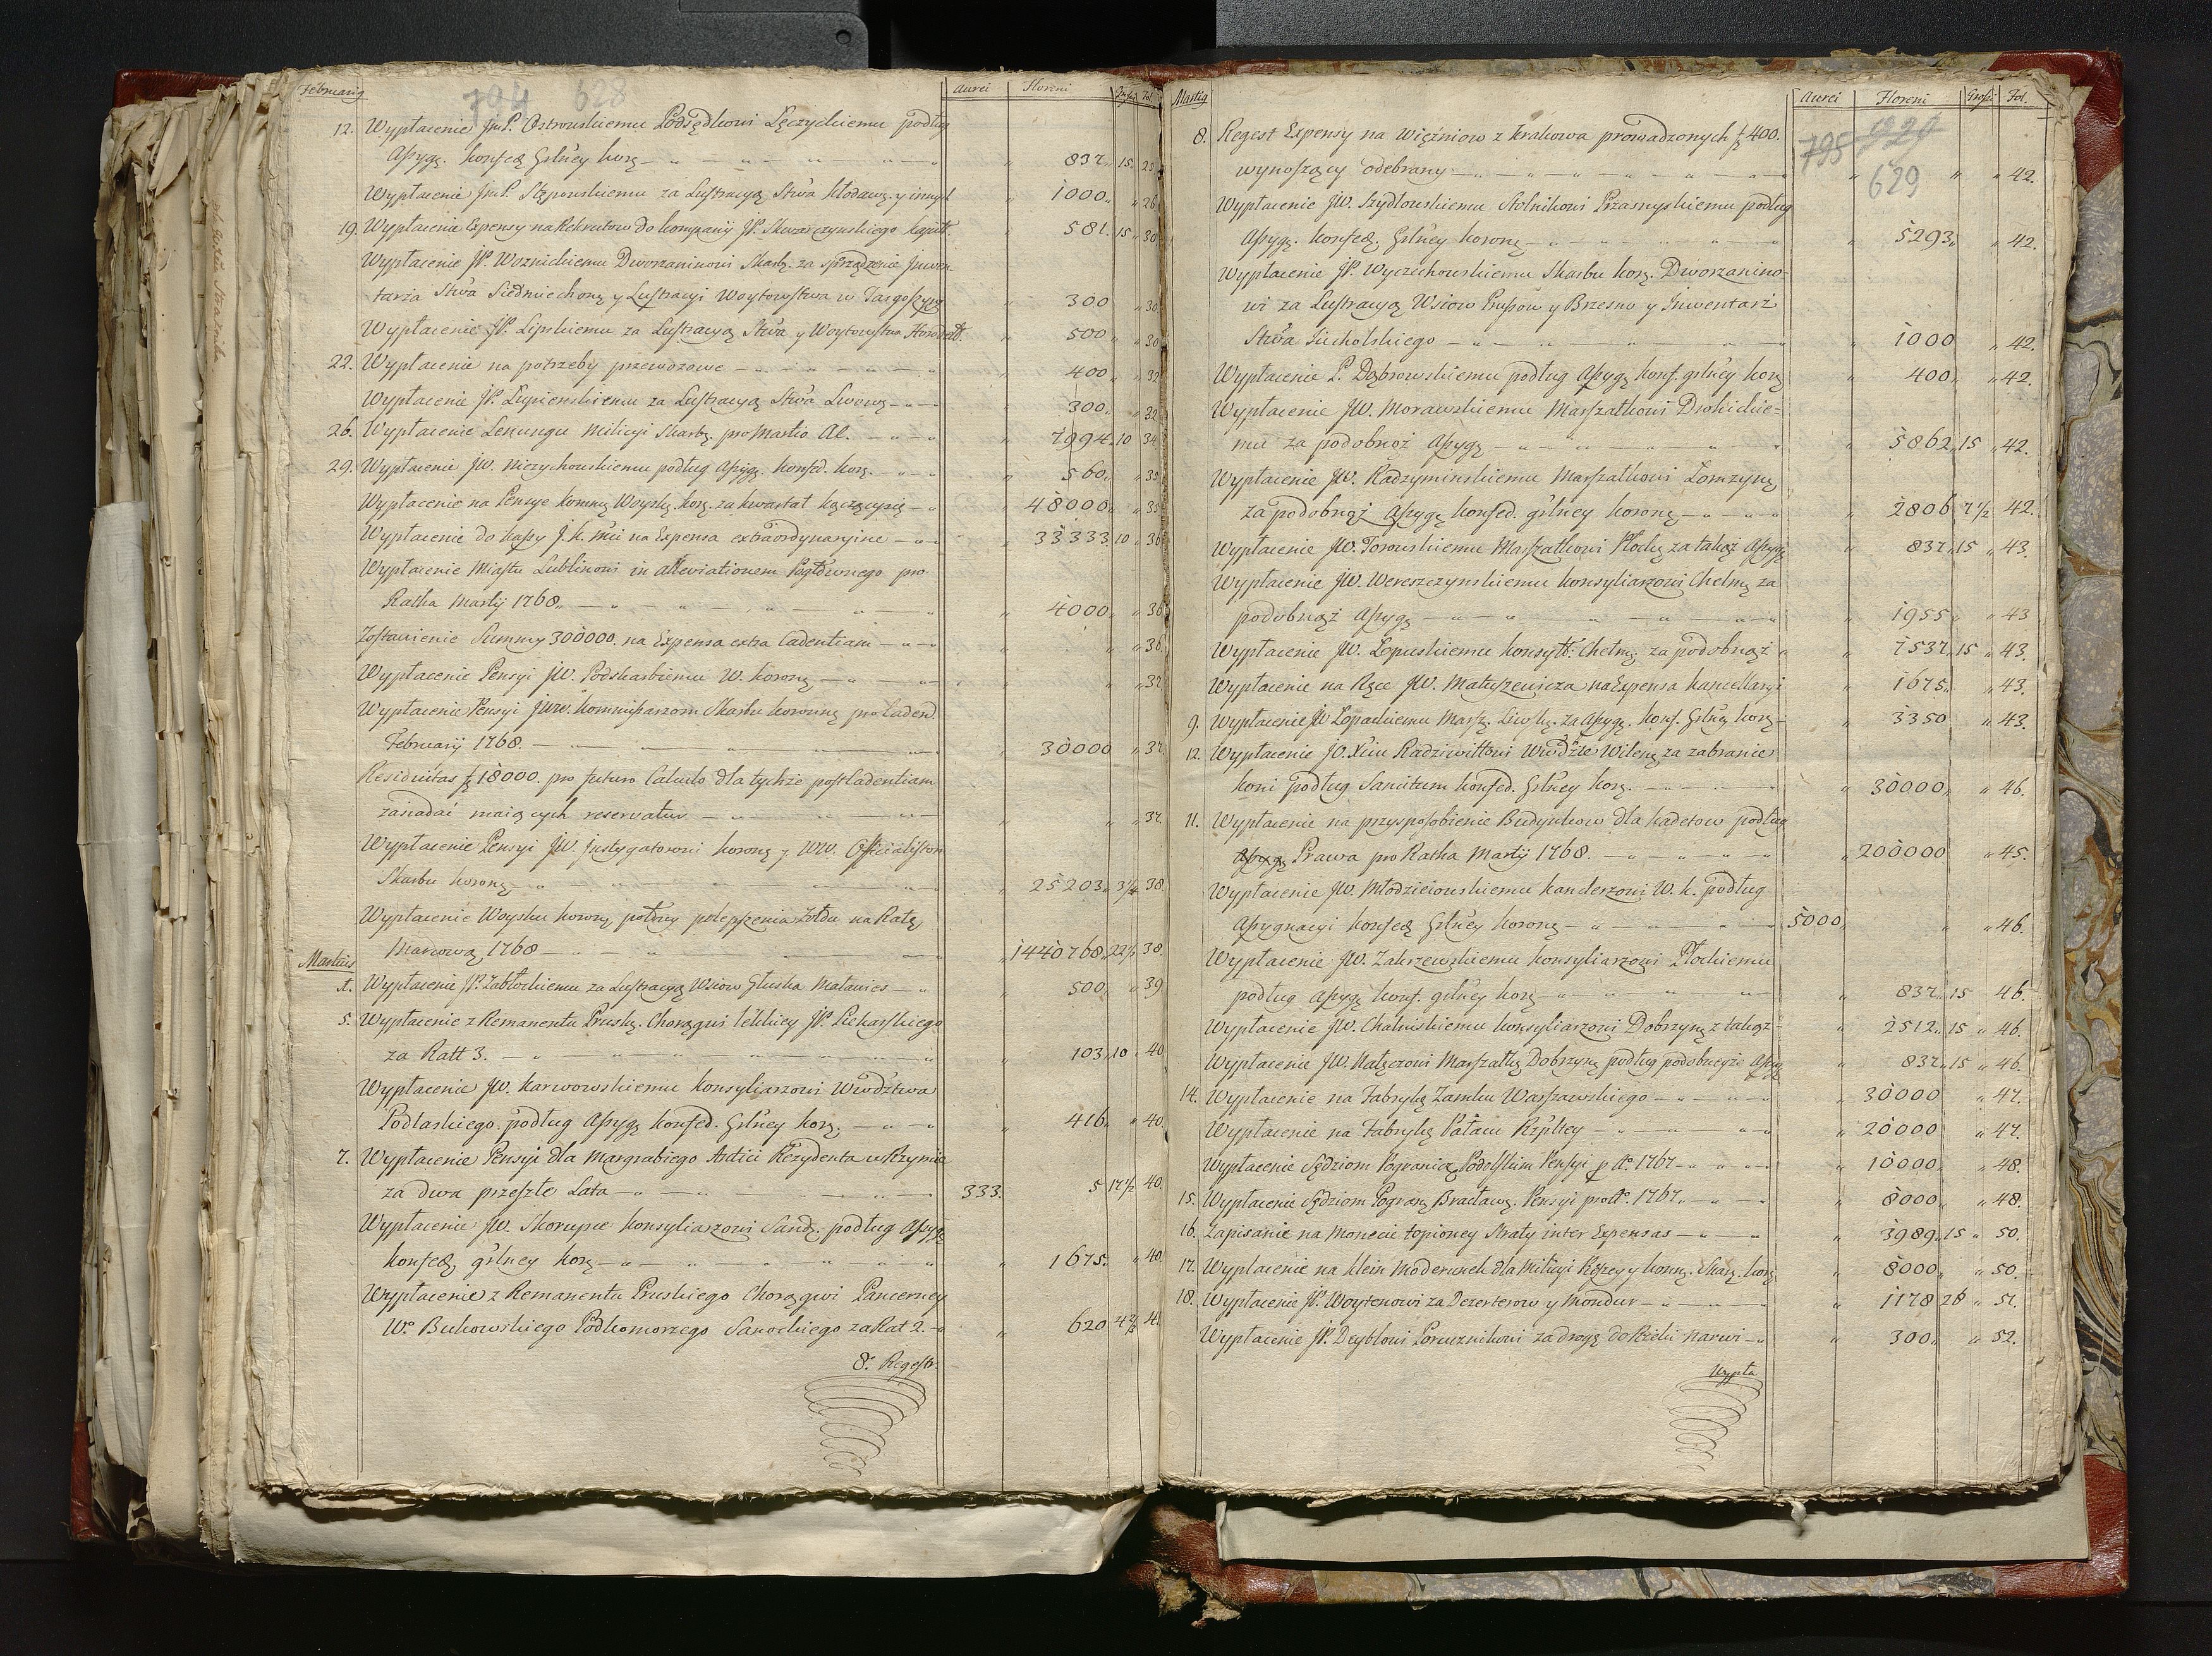 Februarij 794 628 Aurei Floreni Groszi Fol.
12. Wypłacenie JmP. Ostrowskiemu Podsędkowi Łęczyckiemu podług
Assyg. konfed. Grlney kor. 837 15 23
Wypłacenie JmP. Stępowskiemu za Lustracyą Stwa Kłodaw. y innych 1000 26
19. Wypłacenie Expensy na Rekrutow do kompanij JP. Skurarczynskiego Kapit. 581 15 30
Wypłacenie JP. Woznickiemu Dworzaninowi Skarb. za sporządzenie Inwen-
tarza Stwa Siedmiechow y Lustracyi Woytowstwa w Targoszycy 300 30
Wypłacenie JP. Lipskiemu za Lustracyą Stwa y Woytowstwa 500 30
22. Wypłacenie na potrzeby przewozowe 400 32
Wypłacenie JP. Łupienskiemu za Lustracyą Stwa Lwow. 300 32
26. Wypłacenie Lenungu Milicyi Skarb. pro Martio Al. 7994 10 34
29. Wypłacenie JW. Niezychowskiemu podług Assyg. konfed. kor. 560 35
Wypłacenie na Pensye kommis. Woysk. kor. za kwartał kączącysię 48000 35
Wypłacenie do kassy J. K. Mci na Expensa extraordynaryine 33333 10 36
Wypłacenie Miastu Lublinowi in alleviationem Pogłównego pro
Ratha Martij 1768. 4000 36
Zostawienie Summy 300000. na Expensa extra Cadentiam 36
Wypłacenie Pensyi JW. Podskarbiemu W. koron. 37
Wypłacenie Pensyi JWW. kommissarzom Skarbu koronn. pro Caden.
Februarij 1768. 30000 37
Residuitas fl 18000. pro futuro Calculo dla tychże post Cadentiam
zasiadać maiących reservatur 37
Wypłacenie Pensyi JW. Instygatorowi koron. y WW. Officialistom
Skarbu koron. 25203 3 1/4 38
Wypłacenie Woysku koron. połowy polepszenia Żołdu na Ratę
Marcową 1768 1440768 22 1/2 38.
Martius
1. Wypłacenie JP. Zabłockiemu za Lustracyą Wsiow Głuska Matawies 500 39
5. Wypłacenie z Remanentu Prusk. Chorągwi lekkiey JP. Piekarskiego
za Ratt 3. 103 10 40
Wypłacenie JW. karwowskiemu konsyliarzowi Wwdztwa
Podlaskiego podług Assyg. konfed. Grlney kor. 416 40
7. Wypłacenie Pensyi dla Margrabiego Antici Rezydenta w Rzymie
za dwa przeszłe Lata 333. 5 17 1/2 40
Wypłacenie JW. Skorupce konsyliarzowi Sand. podług Assyg.
konfed. grlney kor. 1675. 40
Wypłacenie z Remanentu Pruskiego Chorągwi Pancerney
W. Bukowskiego Podkomorzego Sanockiego za Rat 2. 620 41
8. Regestr
Martij Aurei Floreni Grosz Fol.
795 929 629
8. Regest Expensy na Więźniow z krakowa prowadzonych fl 400.
wynoszący odebrany 42.
Wypłacenie JW. Szydłowskiemu Stolnikowi Przasnyskiemu podług
Assyg. konfed. Grlney koron. 5293 42.
Wypłacenie JP. Wyczechowskiemu Skarbu kor. Dworzanino-
wi za Lustracyą Wsiow Prussow y Brzesno y Inwentarz
Stwa Tucholskiego 1000 42.
Wypłacenie P. Dąbrowskiemu podług Assyg. konf. grlney kor. 400 42.
Wypłacenie JW. Morawskiemu Marszałkowi Drohickie-
mu za podobnąż Assyg. 5862 15 42.
Wypłacenie JW. Radzyminskiemu Marszałkowi Łomzyn.
za podobnąż Assyg. konfed. grlney koron. 2806 7 1/2 42.
Wypłacenie JW. Torowskiemu Marszałkowi Płock. za takąż Assyg. 837 15 43.
Wypłacenie JW. Wereszczynskiemu konsyliarzowi Chełm. za
podobnąż Assyg. 1955 43
Wypłacenie JW. Łopuskiemu konsyl. Chełm. za podobnąż 7537 15 43.
Wypłacenie na Ręce JW. Matuszewicza na Expensa kancellaryi 1675 43.
9. Wypłacenie JW Łopackiemu Marsz. Liwsk. za Assyg. konf. Grlney kor. 3350 43.
12. Wypłacenie JO. Xciu Radziwiłłowi Wwdzie Wilen. za zabranie
koni podług Sancitum konfed. Grlney kor. 30000 46.
11. Wypłacenie na przysposobienie Budynkow dla kadetow podług
Assyg. Prawa pro Ratha Martij 1768. 200000 45.
Wypłacenie JW. Młodzieiowskiemu kanclerzowi W. k. podług
Assygnacyi konfed. Grlney koron. 5000 46.
Wypłacenie JW. Zakrzewskiemu konsyliarzowi Płockiemu
podług Assyg. konf. grlney kor. 837 15 46.
Wypłacenie JW. Chalinskiemu konsyliarzowi Dobrzyn. z takąż 2512 15 46.
Wypłacenie JW. Nałęczowi Marszałk. Dobrzyn. podług podobneyże Assyg. 837 15 46.
14. Wypłacenie na Fabrykę Zamku Warszawskiego 30000 47.
Wypłacenie na Fabrykę Pałacu Rzpltey 20000 47.
Wypłacenie Sędziom Pogranicz. Podolskim Pensyi p. Ao. 1767 10000 48.
15. Wypłacenie Sędziom Pogran. Bracław. Pensyi pro Ao. 1767. 8000 48.
16. Zapisanie na Monecie topioney Straty inter Expensas 3989 15 50.
17. Wypłacenie na klein Moderunek dla Milicyi Pieszey y konn. Skarb. kor. 8000 50.
18. Wypłacenie JP. Woytenowi za Dezerterow y Mondur 1178 26 51.
Wypłacenie JP. Deyblowi Porucznikowi za drogę do Rzeki Narwi 300 52.
Wypła